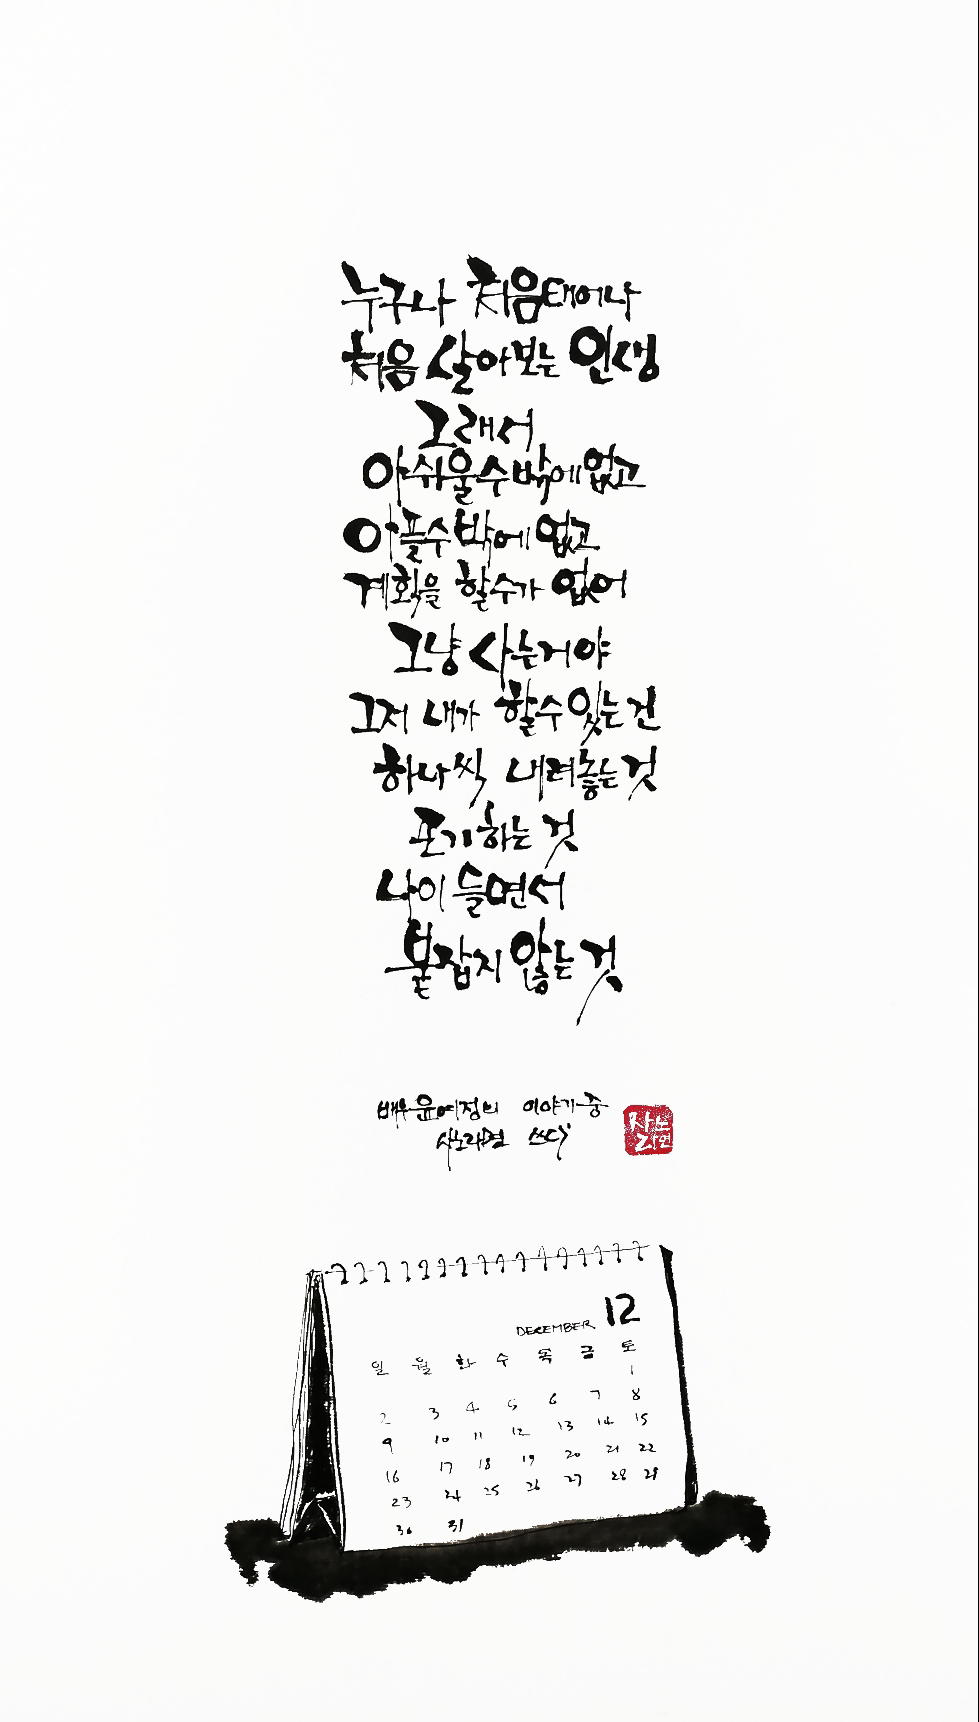 누구나 처음 태어나
처음 살아보는 인생
그래서
아쉬울수밖에없고
아플수밖에 없고
계획을 할수가 없어
그냥 사는거야
그저 내가 할수있는건
하나씩 내려놓는것
포기하는 것
나이 들면서
붙잡지 않는 것
배우 윤여정의 이야기 중
쓰다
DECEMBER 12
일 월 화 수 목 금 토
1
2 3 4 5 6 7 8
9 10 11 12 13 14 15
16 17 18 19 20 21 22
23 24 25 26 27 28 29
30 31